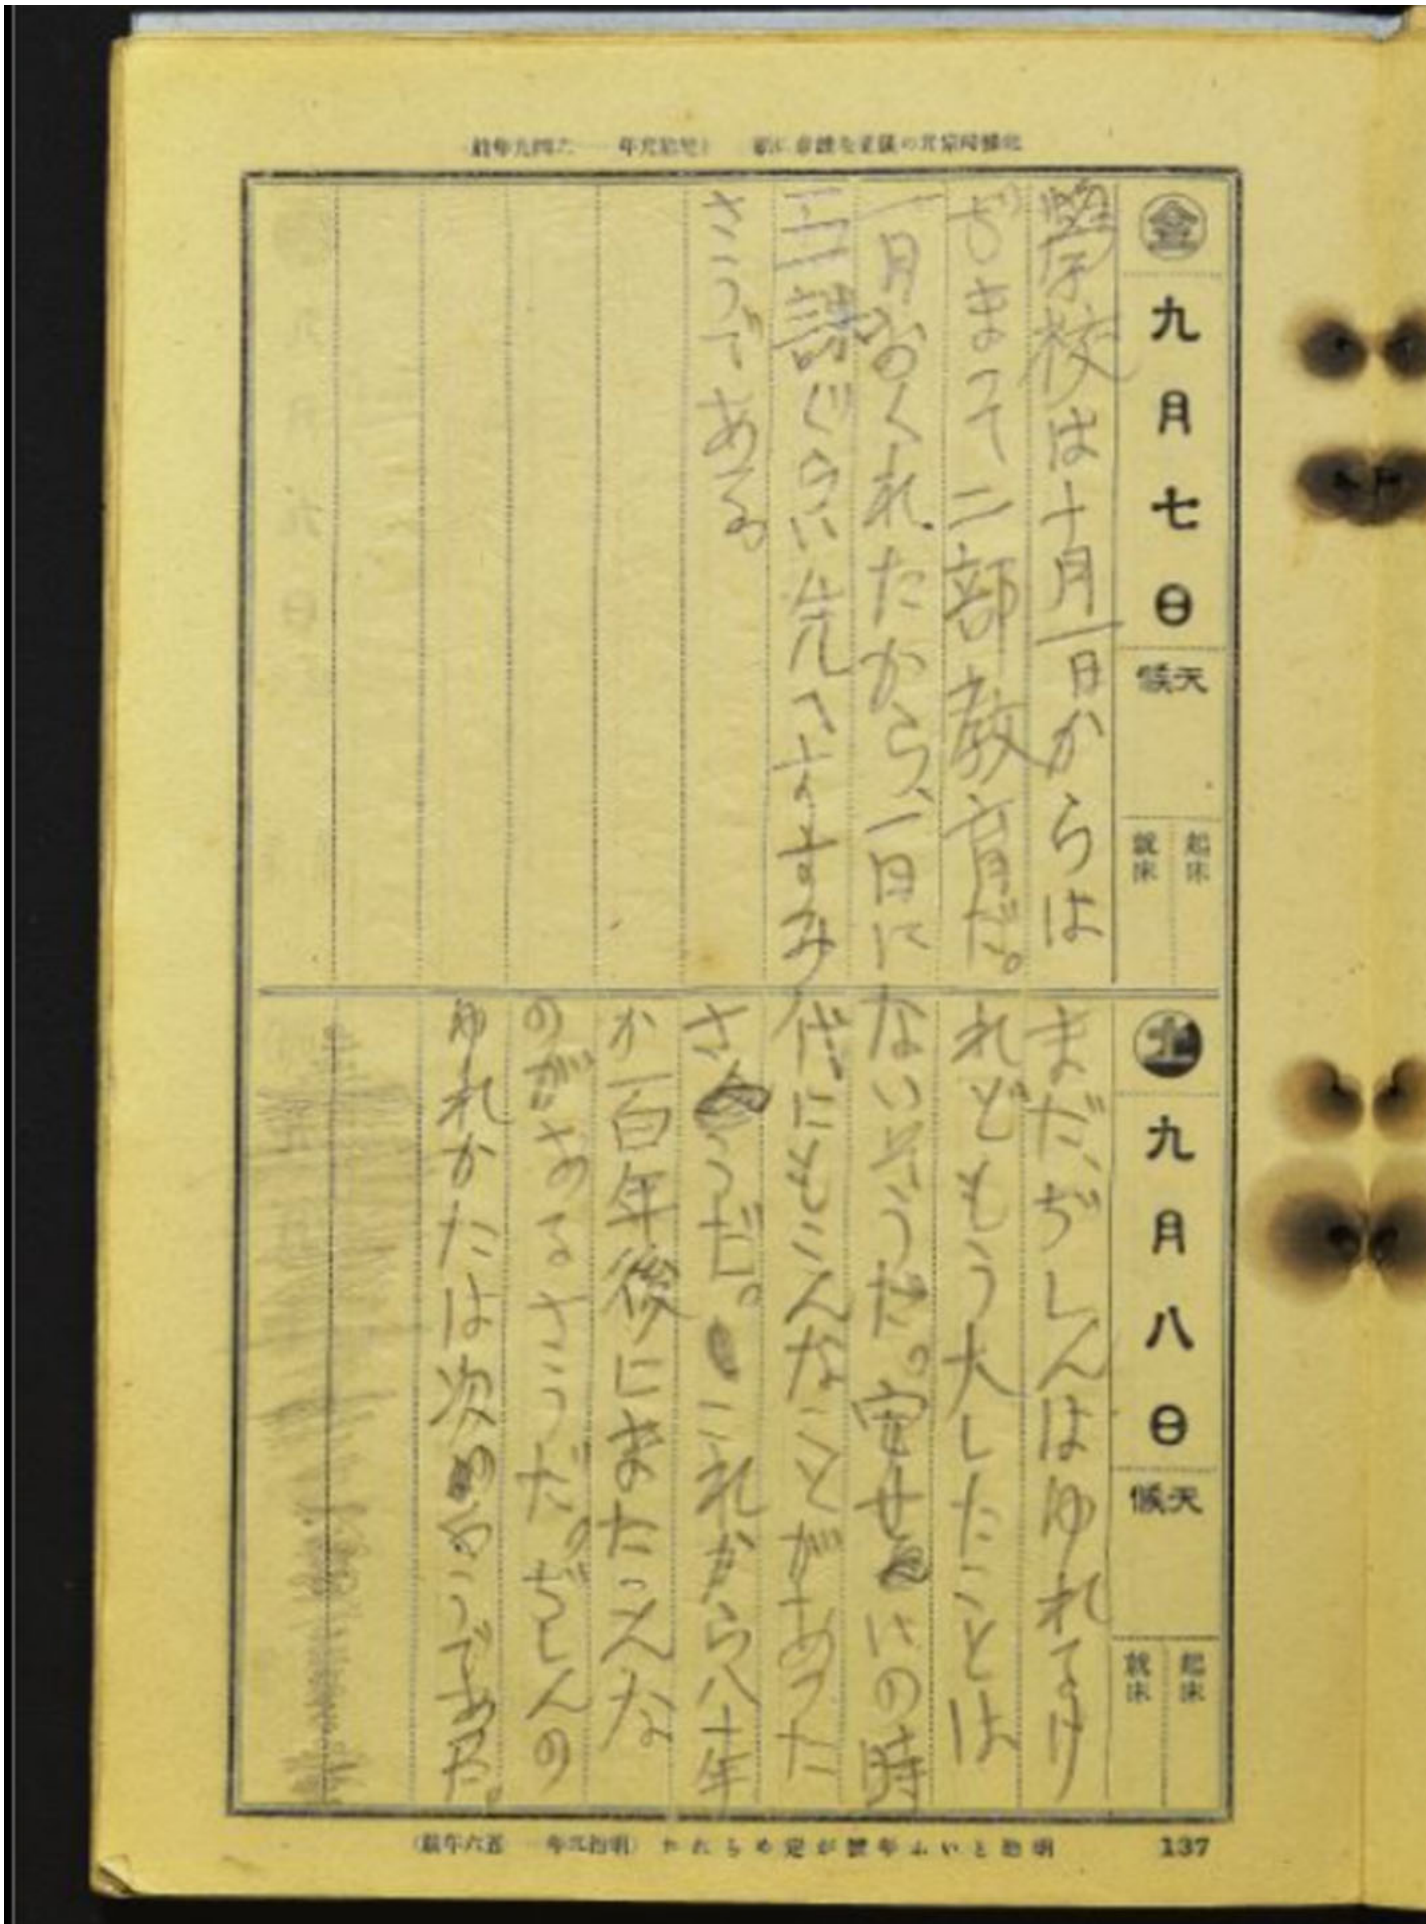 金
九月七日
天候
起床
就床
學校は十月一日からは
じまつて二部教育だ。
一月おくれたから、一日に
二三課ぐらい先へすすみ
さうである。
土
九月八日
天候
起床
就床
まだ、ぢしんはゆれてけ
れどももう大したことは
ないそうだ。安せいの時
代にもこんなことがあつた
さうだ。これから八十年
か百年後にまたこんな
のがあるさうだ。ぢしんの
ゆれかたは次のやうであつた。
明治といふ年號が定められた
137